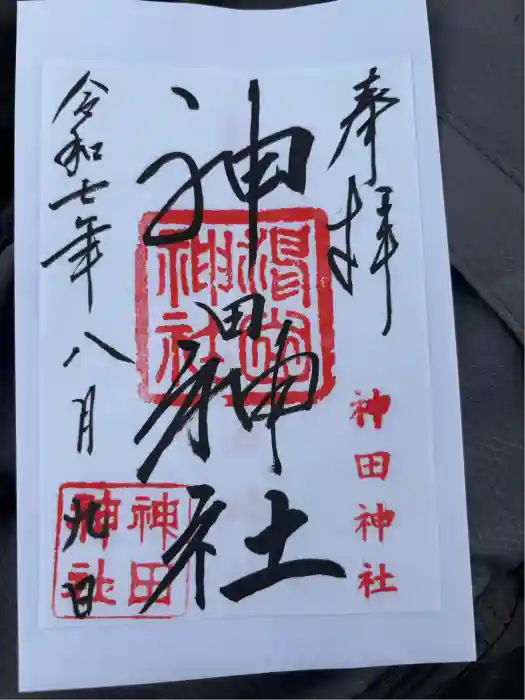 奉拝
神田神社
神田神社
令和七年八月九日
神田神社